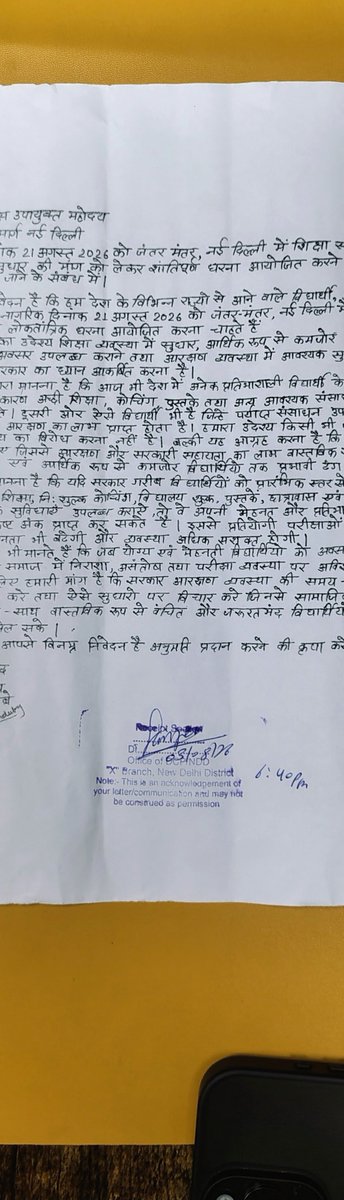 उपायुक्त महोदय
मार्ग नई दिल्ली
21 अगस्त 2026 को जंतर मंतर, नई दिल्ली में शिक्षा
सुधार की मांग को लेकर शांतिपूर्ण धरना आयोजित करने
जाने के संबंध में।
है कि हम देश के विभिन्न राज्यों से आने वाले विद्यार्थी,
दिनांक 21 अगस्त 2026 को जंतर-मंतर, नई दिल्ली
लोकतांत्रिक धरना आयोजित करना चाहते है
उद्देश्य शिक्षा व्यवस्था में सुधार, आर्थिक रूप से कमजोर
उपलब्ध कराने तथा आरक्षण व्यवस्था में आवश्यक
का ध्यान आकर्षित करना है।
मानना है कि आज भी देश में अनेक प्रतिभाशाली विद्यार्थी
कारण अच्छी शिक्षा, कोचिंग, पुस्तके तथा अन्य आवश्यक
। दूसरी ओर ऐसे विद्यार्थी भी है जिन्हे पर्याप्त संसाधन
आरक्षण का लाभ प्राप्त होता है। हमारा उद्देश्य किसी भी
का विरोध करना नहीं है। बल्की यह आग्रह करना है कि
जिससे आरक्षण और सरकारी सहायता का लाभ वास्तविक
एवं आर्थिक रूप से कमजोर विद्यार्थियो तक प्रभावी ढंग
मानना है कि यदि सरकार गरीब विद्यार्थियों को प्रारंभिक स्तर से
शिक्षा, नि: शुल्क कोचिंग, विद्यालय शुल्क, पुस्तके, छात्रावास एवं
सुविधाएं उपलब्ध कराए तो वे अपनी मेहनत और
अंक प्राप्त कर सकते है। इससे प्रतियोगी परीक्षाओं
भी बढेगी और व्यवस्था अधिक सशक्त होगी।
भी मानते है कि जब योग्य एवं मेहनती विद्यार्थियों को
समाज में निराशा, असंतोष तथा परीक्षा व्यवस्था पर
हमारी मांग है कि सरकार आरक्षण व्यवस्था की समय -
करे तथा ऐसे सुधारो पर विचार करे जिनसे
- साथ वास्तविक रूप से वंचित और जरूरतमंद
सके।
आपसे विनम्र निवेदन है अनुमति प्रदान करने की कृपा
Receipt Section
Dt.
Office of DCP/NDD
"X" Branch, New Delhi District
Note:- This is an acknowledgement of
your letter/communication and may not
be construed as permission
6:40 Pm